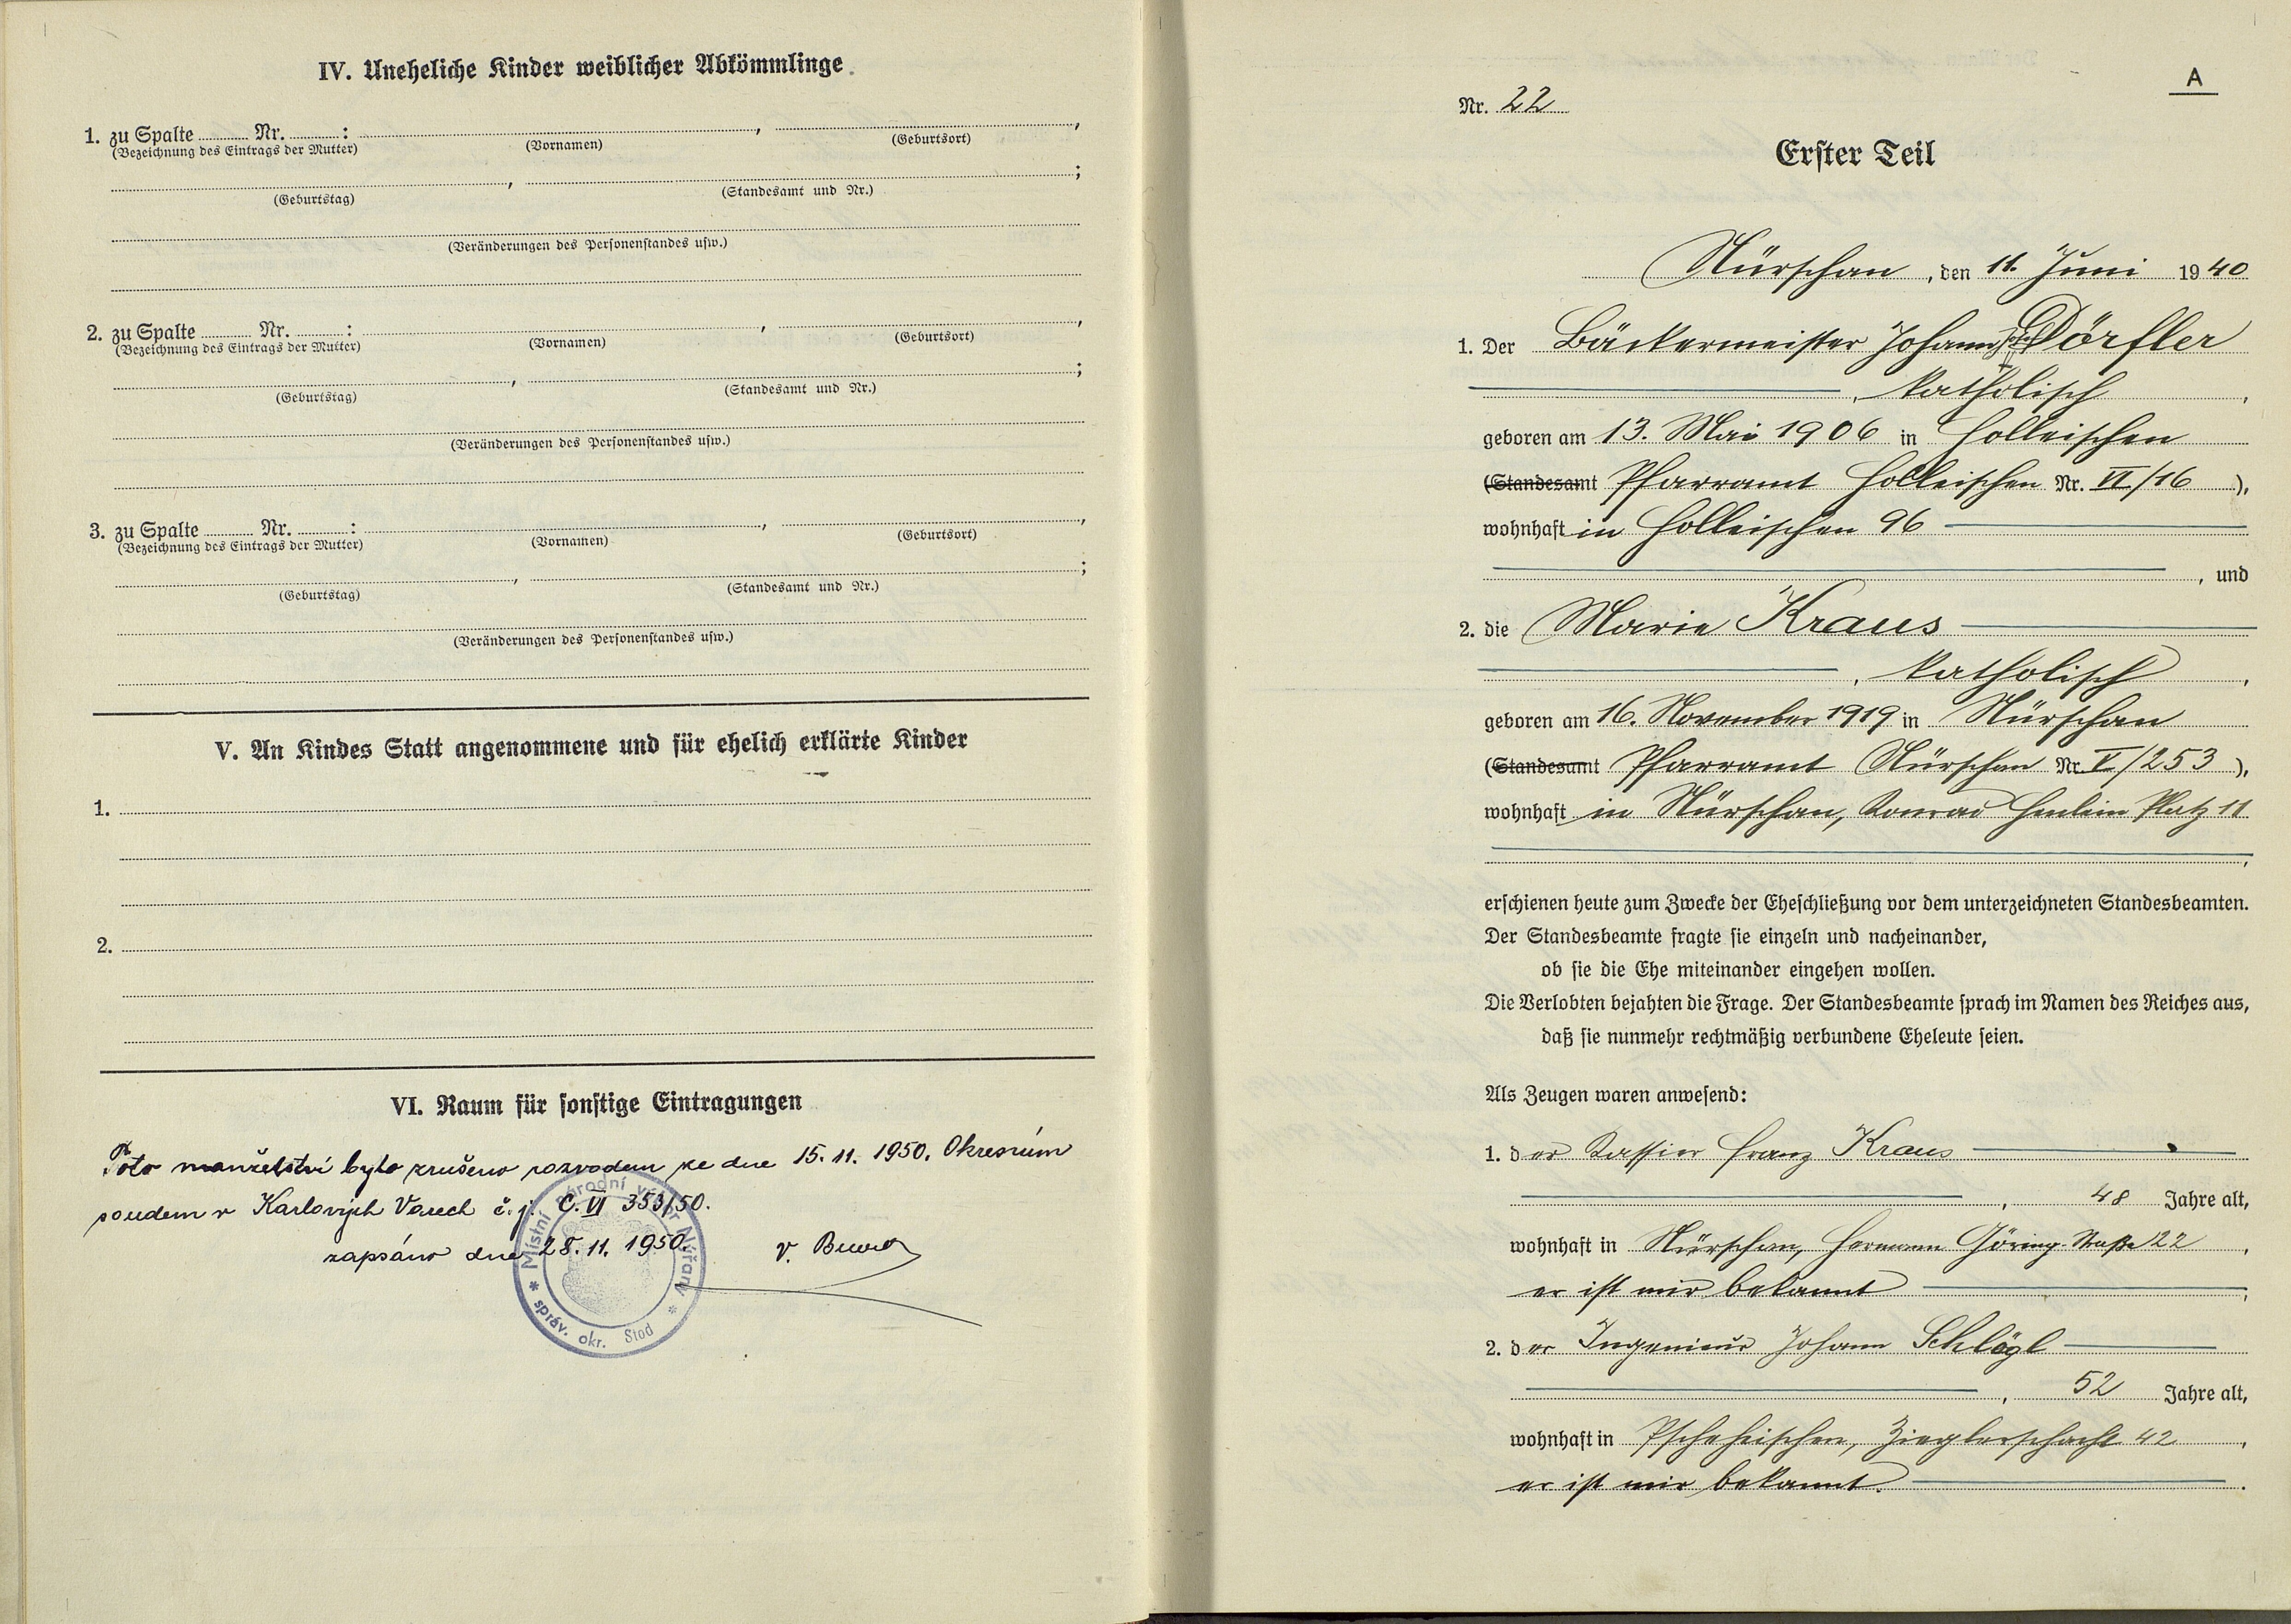 IV. Uneheliche Kinder weiblicher Abkömmlinge.
1. zu Spalte Nr. : , ,
(Bezeichnung des Eintrags der Mutter) (Vornamen) (Geburtsort)
, ;
(Geburtstag) (Standesamt und Nr.)
(Veränderungen des Personenstandes usw.)
2. zu Spalte Nr. : , ,
(Bezeichnung des Eintrags der Mutter) (Vornamen) (Geburtsort)
, ;
(Geburtstag) (Standesamt und Nr.)
(Veränderungen des Personenstandes usw.)
3. zu Spalte Nr. : , ,
(Bezeichnung des Eintrags der Mutter) (Vornamen) (Geburtsort)
, ;
(Geburtstag) (Standesamt und Nr.)
(Veränderungen des Personenstandes usw.)
V. An Kindes Statt angenommene und für ehelich erklärte Kinder
1.
2.
VI. Raum für sonstige Eintragungen
Toto manželství bylo zrušeno rozvodem ke dne 15. 11. 1950. Okresním
soudem v Karlových Varech č. j. C. VI 353/50.
zapsáno dne 28. 11. 1950.
Místní národní výbor Nýřany * správ. okr. Stod *
A
Nr. 22
Erster Teil
Nürschan, den 11. Juni 1940
1. Der Bäckermeister Johann Dörfler
, katholisch,
geboren am 13. Mai 1906 in Holleischen
(Standesamt Pfarramt Holleischen Nr. VI/16 ),
wohnhaft in Holleischen 96
, und
2. die Marie Kraus
, katholisch,
geboren am 16. November 1919 in Nürschan
(Standesamt Pfarramt Nürschan Nr. V/253 ),
wohnhaft in Nürschan, Konrad Henlein Platz 11
,
erschienen heute zum Zwecke der Eheschließung vor dem unterzeichneten Standesbeamten.
Der Standesbeamte fragte sie einzeln und nacheinander,
ob sie die Ehe miteinander eingehen wollen.
Die Verlobten bejahten die Frage. Der Standesbeamte sprach im Namen des Reiches aus,
daß sie nunmehr rechtmäßig verbundene Eheleute seien.
Als Zeugen waren anwesend:
1. der Kassier Franz Kraus
, 48 Jahre alt,
wohnhaft in Nürschan, Hermann Göring-Straße 22,
er ist mir bekannt,
2. der Ingenieur Johann Schlögl
, 52 Jahre alt,
wohnhaft in Pscheheischen, Zieglerschacht 42,
er ist mir bekannt.